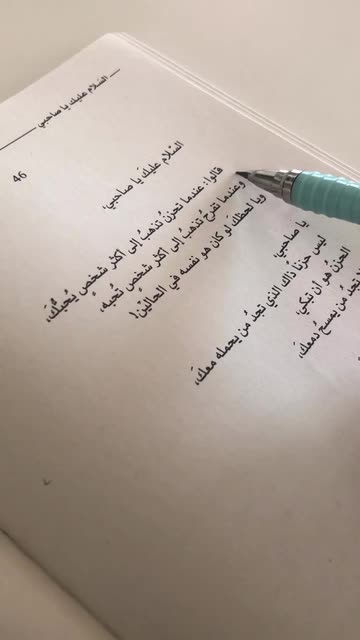 السّلام عليك يا صاحبي
46
السّلام عليكَ يا صاحبي،
قالوا: عندما تحزنُ تذهبُ إلى أكثر شخصٍ يُحبُّكَ،
وعندما تفرحُ تذهبُ إلى أكثر شخصٍ تُحبّه،
ويا لحظكَ لو كان هو نفسه في الحالَين!
يا صاحبي،
ليس حزناً ذاك الذي تجدُ من يحمله معكَ،
الحزنُ هو أن تبكي،
تجدَ من يمسحُ دمعكَ،